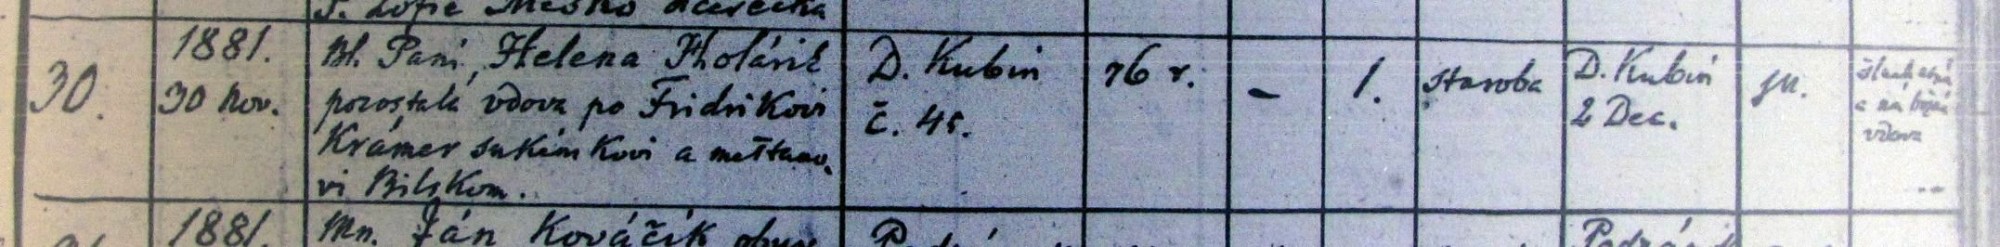 P. Zofie Meško dcérečka
30.
1881.
30 Nov.
Bl. Paní, Helena Tholárik
pozostalá vdova po Fridrikovi
Krámer sukenníkovi a mešťano-
vi Bilskom.
D. Kubin
č. 45.
76 r.
-
1.
staroba
D. Kubin
2 Dec.
a nábožná
vdova
1881.
Mn. Ján Kováčik